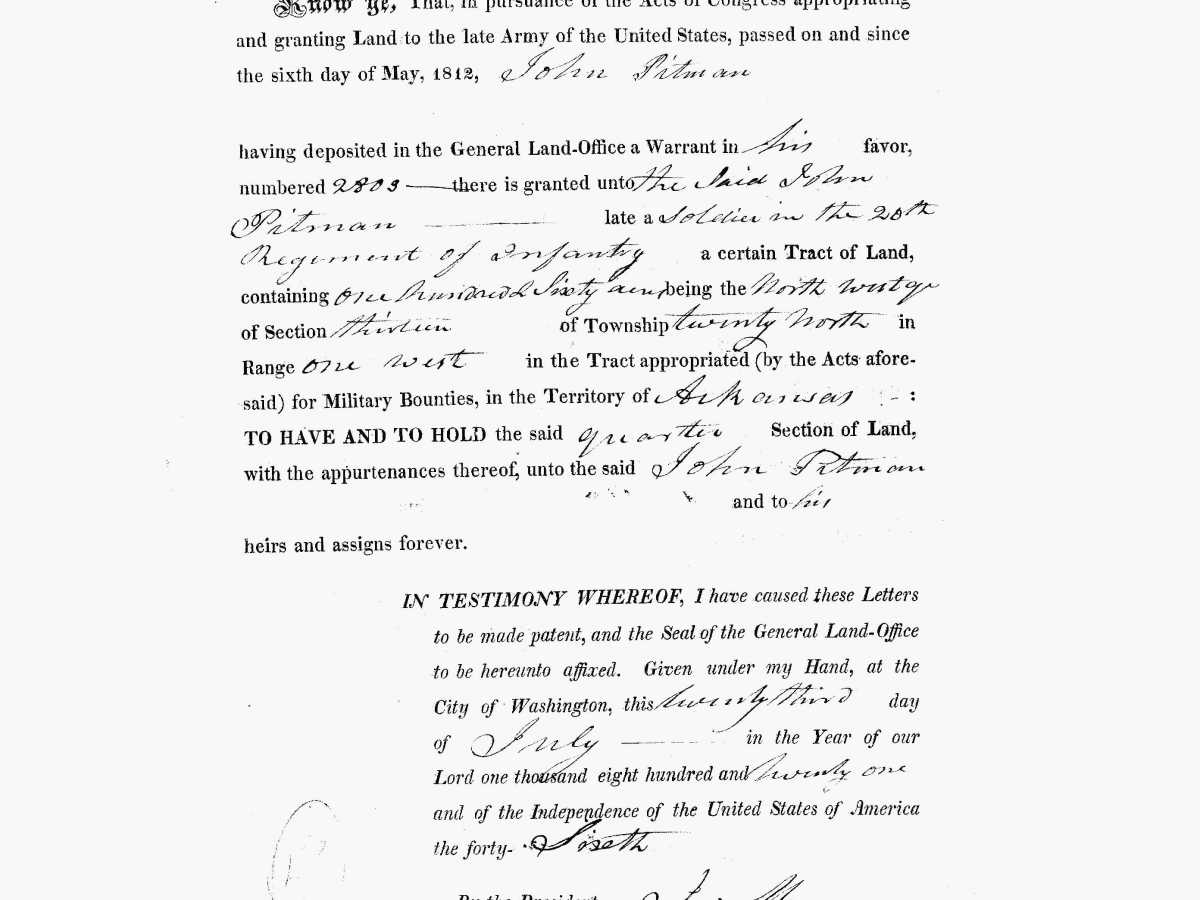 Know ye, That, in pursuance of the Acts of Congress appropriating
and granting Land to the late Army of the United States, passed on and since
the sixth day of May, 1812, John Pitman
having deposited in the General Land-Office a Warrant in his favor,
numbered 2803 there is granted unto the said John
Pitman late a Soldier in the 20th
Regiment of Infantry a certain Tract of Land,
containing One hundred & Sixty acres being the North west qr
of Section thirteen of Township twenty North in
Range one west in the Tract appropriated (by the Acts afore-
said) for Military Bounties, in the Territory of Arkansas :
TO HAVE AND TO HOLD the said quarter Section of Land,
with the appurtenances thereof, unto the said John Pitman
and to his
heirs and assigns forever.
IN TESTIMONY WHEREOF, I have caused these Letters
to be made patent, and the Seal of the General Land-Office
to be hereunto affixed. Given under my Hand, at the
City of Washington, this twenty third day
of July in the Year of our
Lord one thousand eight hundred and twenty one
and of the Independence of the United States of America
the forty- Sixth
By the President